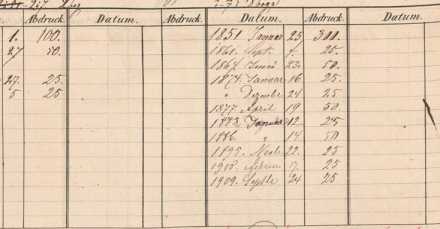 Abdruck. Datum. Abdruck. Datum. Abdruck. Datum.
1. 100. 1851 Januar 25 300.
27 50. 1861. Sept. 25.
1867. 23. 50.
27. 25. 1874. Januar 16 25.
5 25 " Dezember 24 25
1877. April 19 50.
1883. Januar 12 25
1886. " 14 50
1895. 22. 25
25
1909. Septbr 24 25